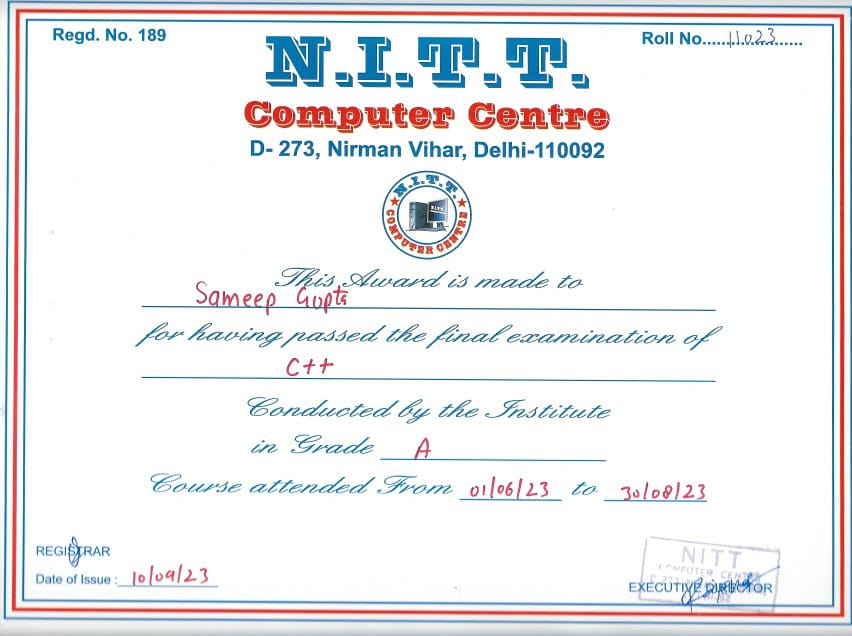 Regd. No. 189
Roll No.....11023......
N.I.T.T.
Computer Centre
D- 273, Nirman Vihar, Delhi-110092
N.I.T.T.
COMPUTER CENTRE
This Award is made to
Sameep Gupta
for having passed the final examination of
C++
Conducted by the Institute
in Grade A
Course attended From 01/06/23 to 30/08/23
REGISTRAR
Date of Issue : 10/09/23
NITT
COMPUTER CENTRE
EXECUTIVE DIRECTOR